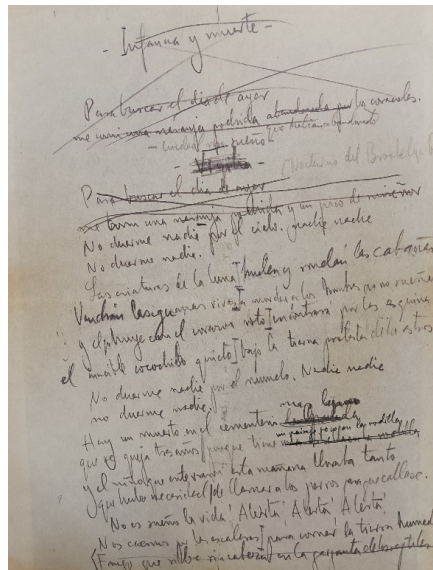 - Infancia y muerte -
Para buscar el día de ayer
me comí una naranja podrida abandonada por los caracoles.
- ciudad sin sueño -
que había abandonado
Vigilia -
(Nocturno del Brooklyn B
Para buscar el día de ayer
me comí una naranja podrida y un poco de
No duerme nadie por el cielo. nadie nadie
No duerme nadie.
Las criaturas de la luna huelen y rondan las cabañas
Vendrán las iguanas vivas a morder a los hombres que no sueñan
y el que huye con el corazón roto encontrará por las esquinas
el increíble cocodrilo quieto bajo la tierna protesta de los astros
No duerme nadie por el mundo. Nadie nadie
no duerme nadie.
Hay un muerto en el cementerio mas lejano
que se queja tres años porque tiene un paisaje seco en las rodillas
y el niño que enterraron esta mañana lloraba tanto
que hubo necesidad de llamar a los perros para que callase.
No es sueño la vida ¡Alerta! ¡Alerta! ¡Alerta!
Nos caemos por las escaleras para comer la tierra humeda
en la garganta de los reptiles